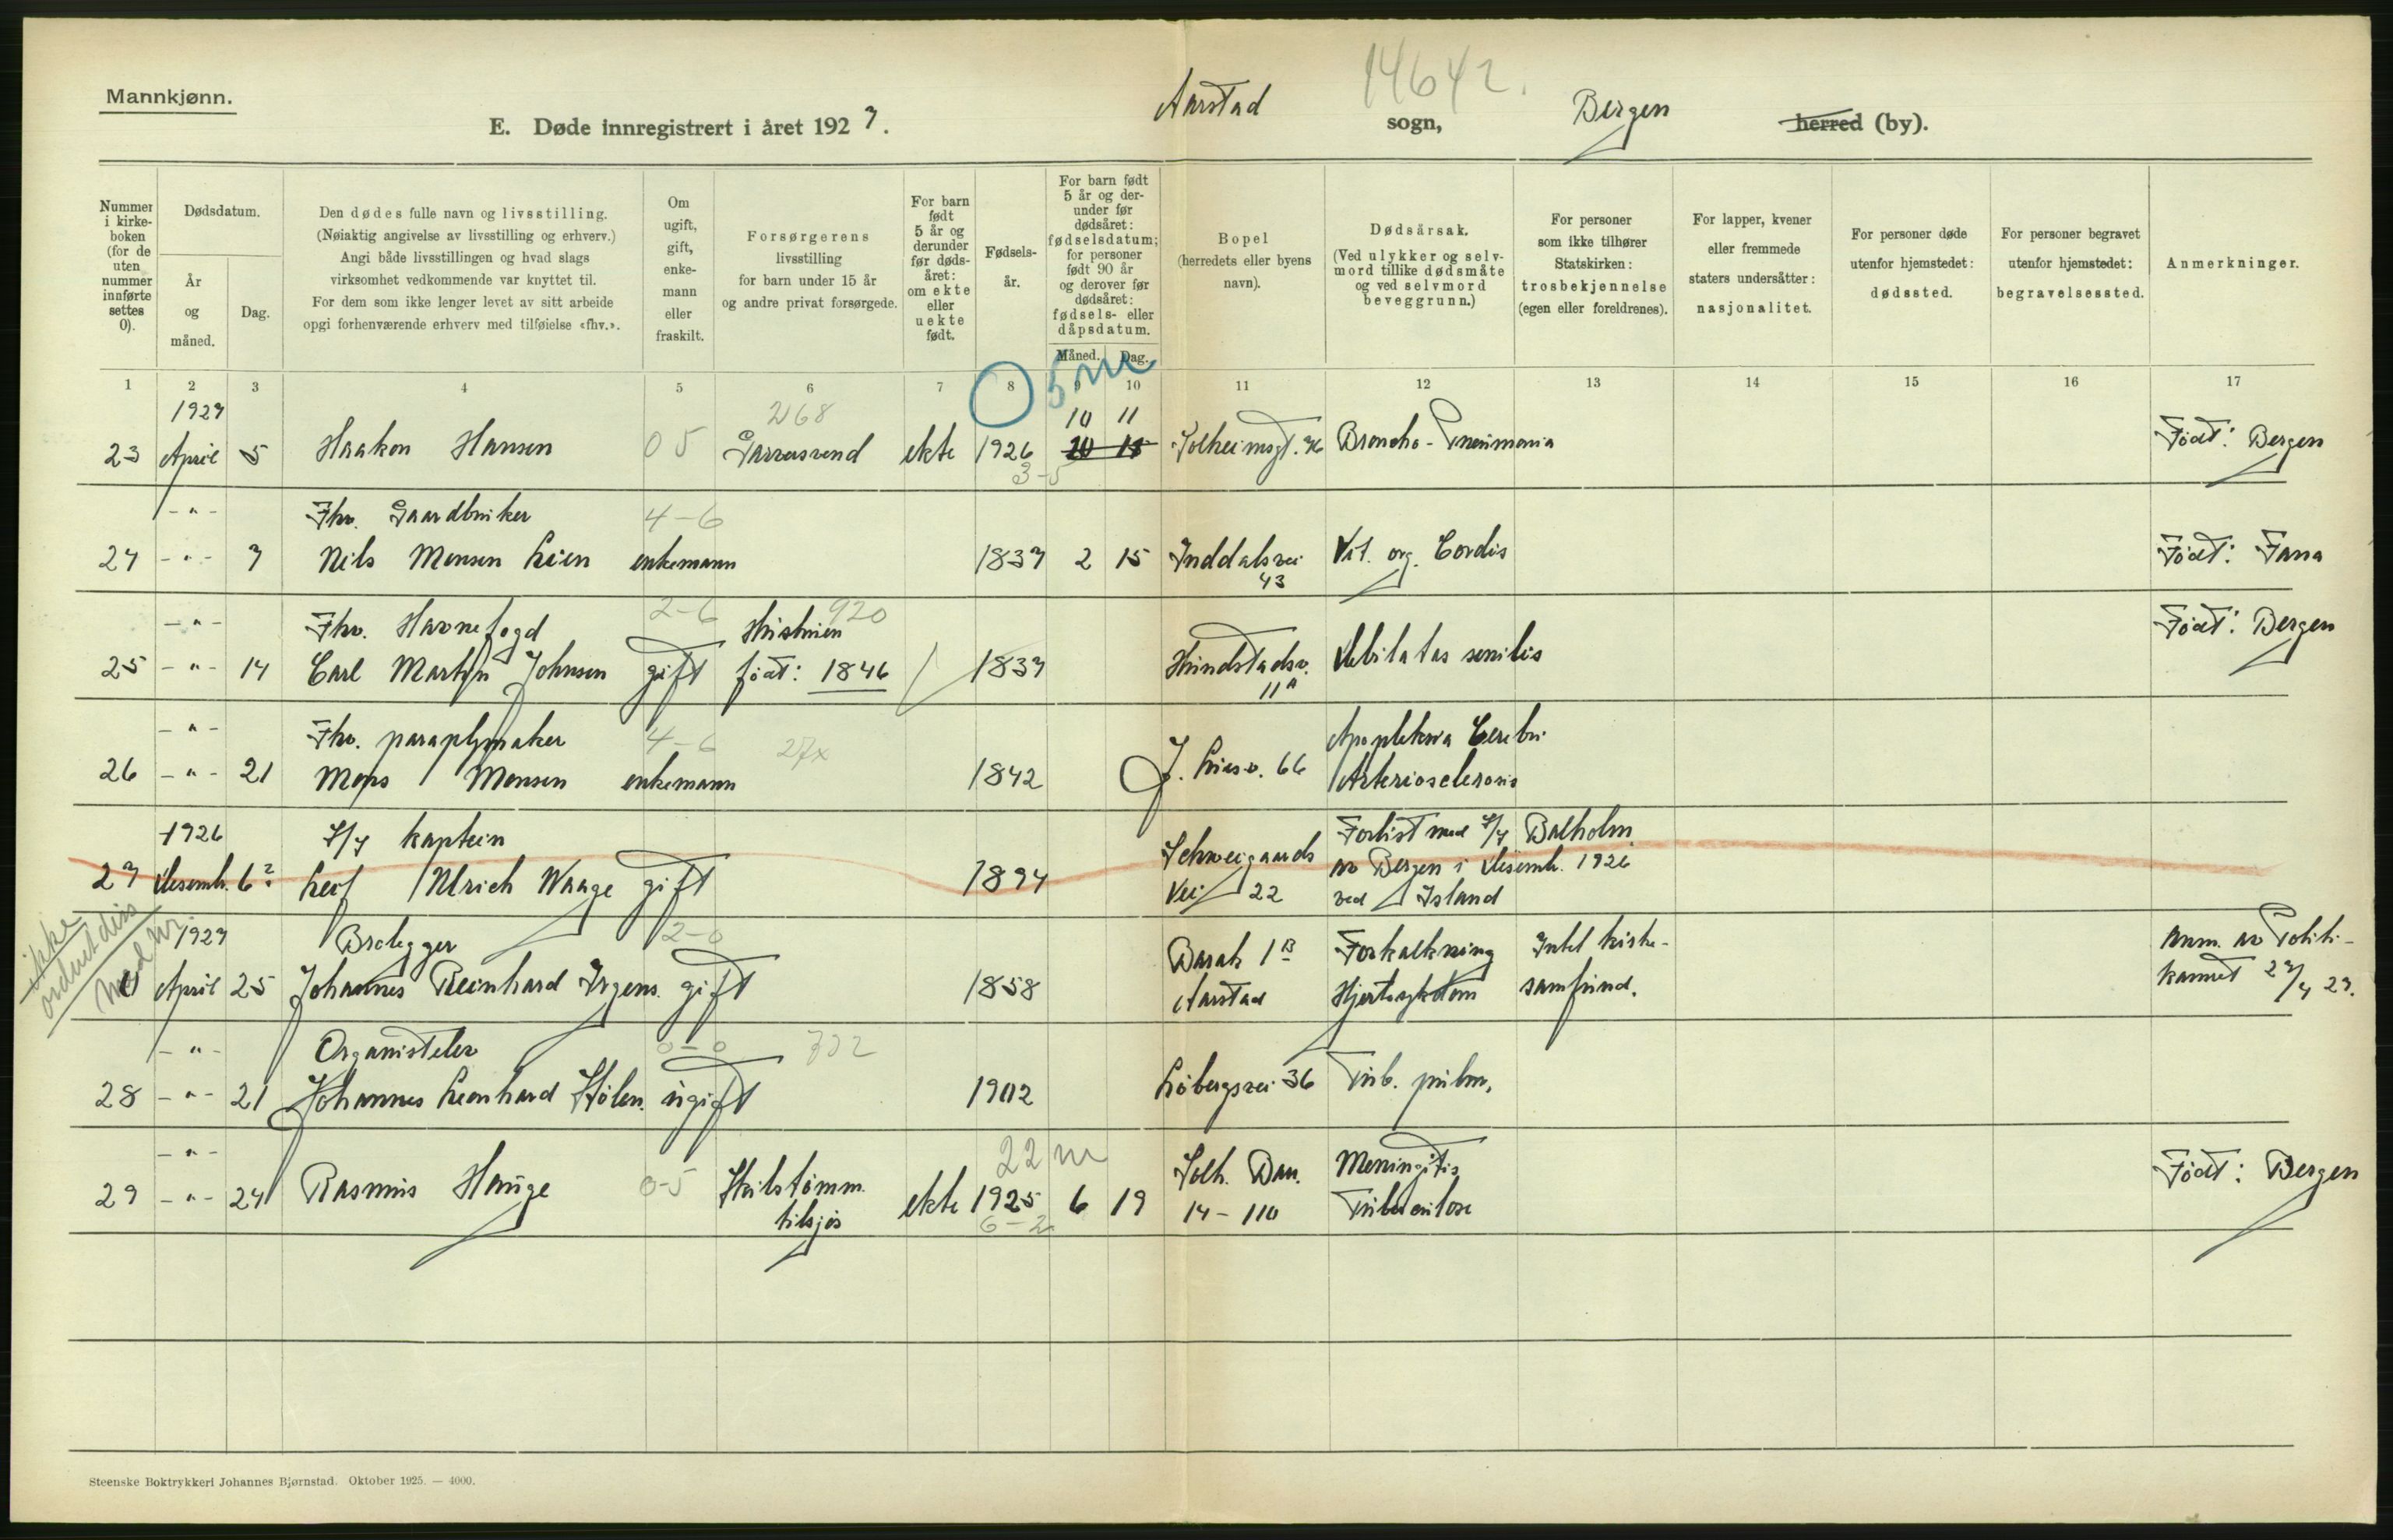 Mannkjønn.
E. Døde innregistrert i året 1927.
Aarstad sogn,
14642.
Bergen herred (by).
Nummer i kirkeboken (for de uten nummer innførte settes 0).
Dødsdatum.
År og måned.
Dag.
Den dødes fulle navn og livsstilling.
(Nøiaktig angivelse av livsstilling og erhverv.)
Angi både livsstillingen og hvad slags
virksomhet vedkommende var knyttet til.
For dem som ikke lenger levet av sitt arbeide
opgi forhenværende erhverv med tilføielse «fhv.».
Om ugift, gift, enkemann eller fraskilt.
Forsørgerens
livsstilling
for barn under 15 år
og andre privat forsørgede.
For barn født 5 år og derunder før dødsåret: om ekte eller uekte født.
Fødselsår.
For barn født 5 år og derunder før dødsåret: fødselsdatum; for personer født 90 år og derover før dødsåret: fødsels- eller dåpsdatum.
Måned. Dag.
Bopel
(herredets eller byens navn).
Dødsårsak.
(Ved ulykker og selvmord tillike dødsmåte og ved selvmord beveggrunn.)
For personer som ikke tilhører Statskirken: trosbekjennelse (egen eller foreldrenes).
For lapper, kvener eller fremmede staters undersåtter: nasjonalitet.
For personer døde utenfor hjemstedet: dødssted.
For personer begravet utenfor hjemstedet: begravelsessted.
Anmerkninger.
1 2 3 4 5 6 7 8 9 10 11 12 13 14 15 16 17
5 m
1927 268 10 11
23 April 5 Haakon Hansen 05 ekte 1926 10 11 Solheimsgt. Broncho-Pneumonia Født: Bergen
3-5
-"- Fhv. Gaardbruker 4-6
24 -"- 7 Nils Monsen Lien enkemann 1837 2 15 Inddalsvei 43 Vit. org. Cordis Født: Fana
-"- Fhv. Havnefogd 2-6 Hustruen 920 Født: Bergen
25 -"- 14 Carl Martin Johnsen gift født: 1846 1837 Debilatas senilis
11A
-"- Fhv. paraplymaker 4-6 27x
26 -"- 21 Mons Monsen enkemann 1842 J. Liesv. 66 Apopleksia Cerebri
Arteriosclerosis
1926 S/S kaptein Schweigaards Forlist med S/S Balholm
27 Desemb. 6? Leif Ulrich Waage gift 1894 Vei 22 av Bergen i Desemb. 1926
ved Island
ikke
med nr
1927 Brolegger 2-0 Barak 1B Forkalkning Intet kirke- Anm. av Politi-
0 April 25 Johannes Reinhard Irgens. gift 1858 Aarstad Hjertesykdom samfund. kamret 27/4 27.
-"- Organistelev 0-0 732
28 -"- 21 Johannes Leonhard Hølen. ugift 1902 Løbergsvei 36 Tub. pulm.
-"- 22 m Solh. Bar. Meningitis
29 -"- 24 Rasmus Hauge 0-5 ekte 1925 6 19 14-110 Tuberculose Født: Bergen
6-2
Steenske Boktrykkeri Johannes Bjørnstad. Oktober 1925. — 4000.